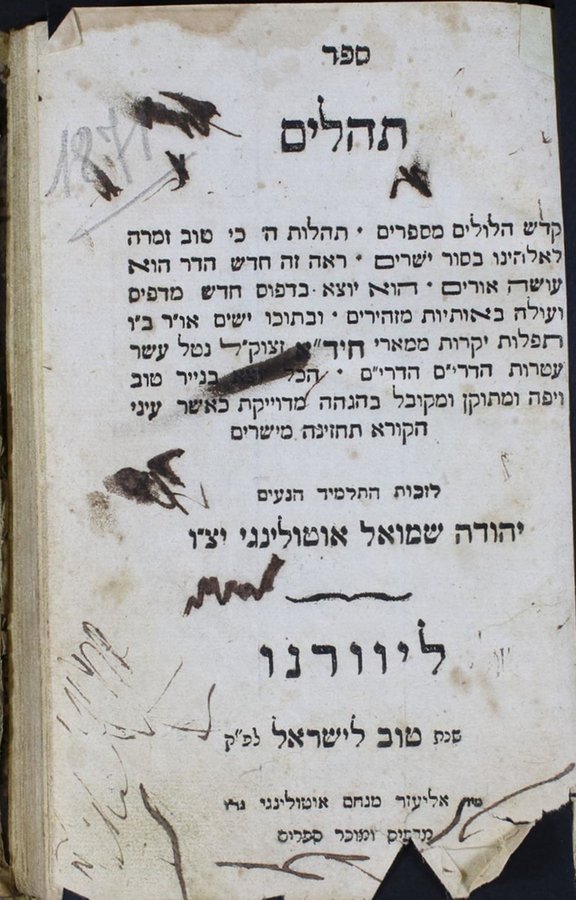 ספר
תהלים
1871
קדש הלולים מספרים · תהלות ה׳ כי טוב זמרה
לאלהינו בסור ישרים · ראה זה חדש הדר הוא
עושה אורים · הוא יוצא בדפוס חדש מדפיס
ועולה באותיות מזהירים · ובתוכו ישים או״ר ב״ו
תפלות יקרות ממארי חיד״א זצוק״ל נטל עשר
עטרות הדרי״ם הדרי״ם · הכל בנייר טוב
ויפה ומתוקן ומקובל בהגהה מדוייקת כאשר עיני
הקורא תחזינה מישרים
לזכות התלמיד הנעים
יהודה שמואל אוטולינגי יצ״ו
ליוורנו
שנת טוב לישראל לפ״ק
אליעזר מנחם אוטולינגי
מדפיס ומוכר ספרים